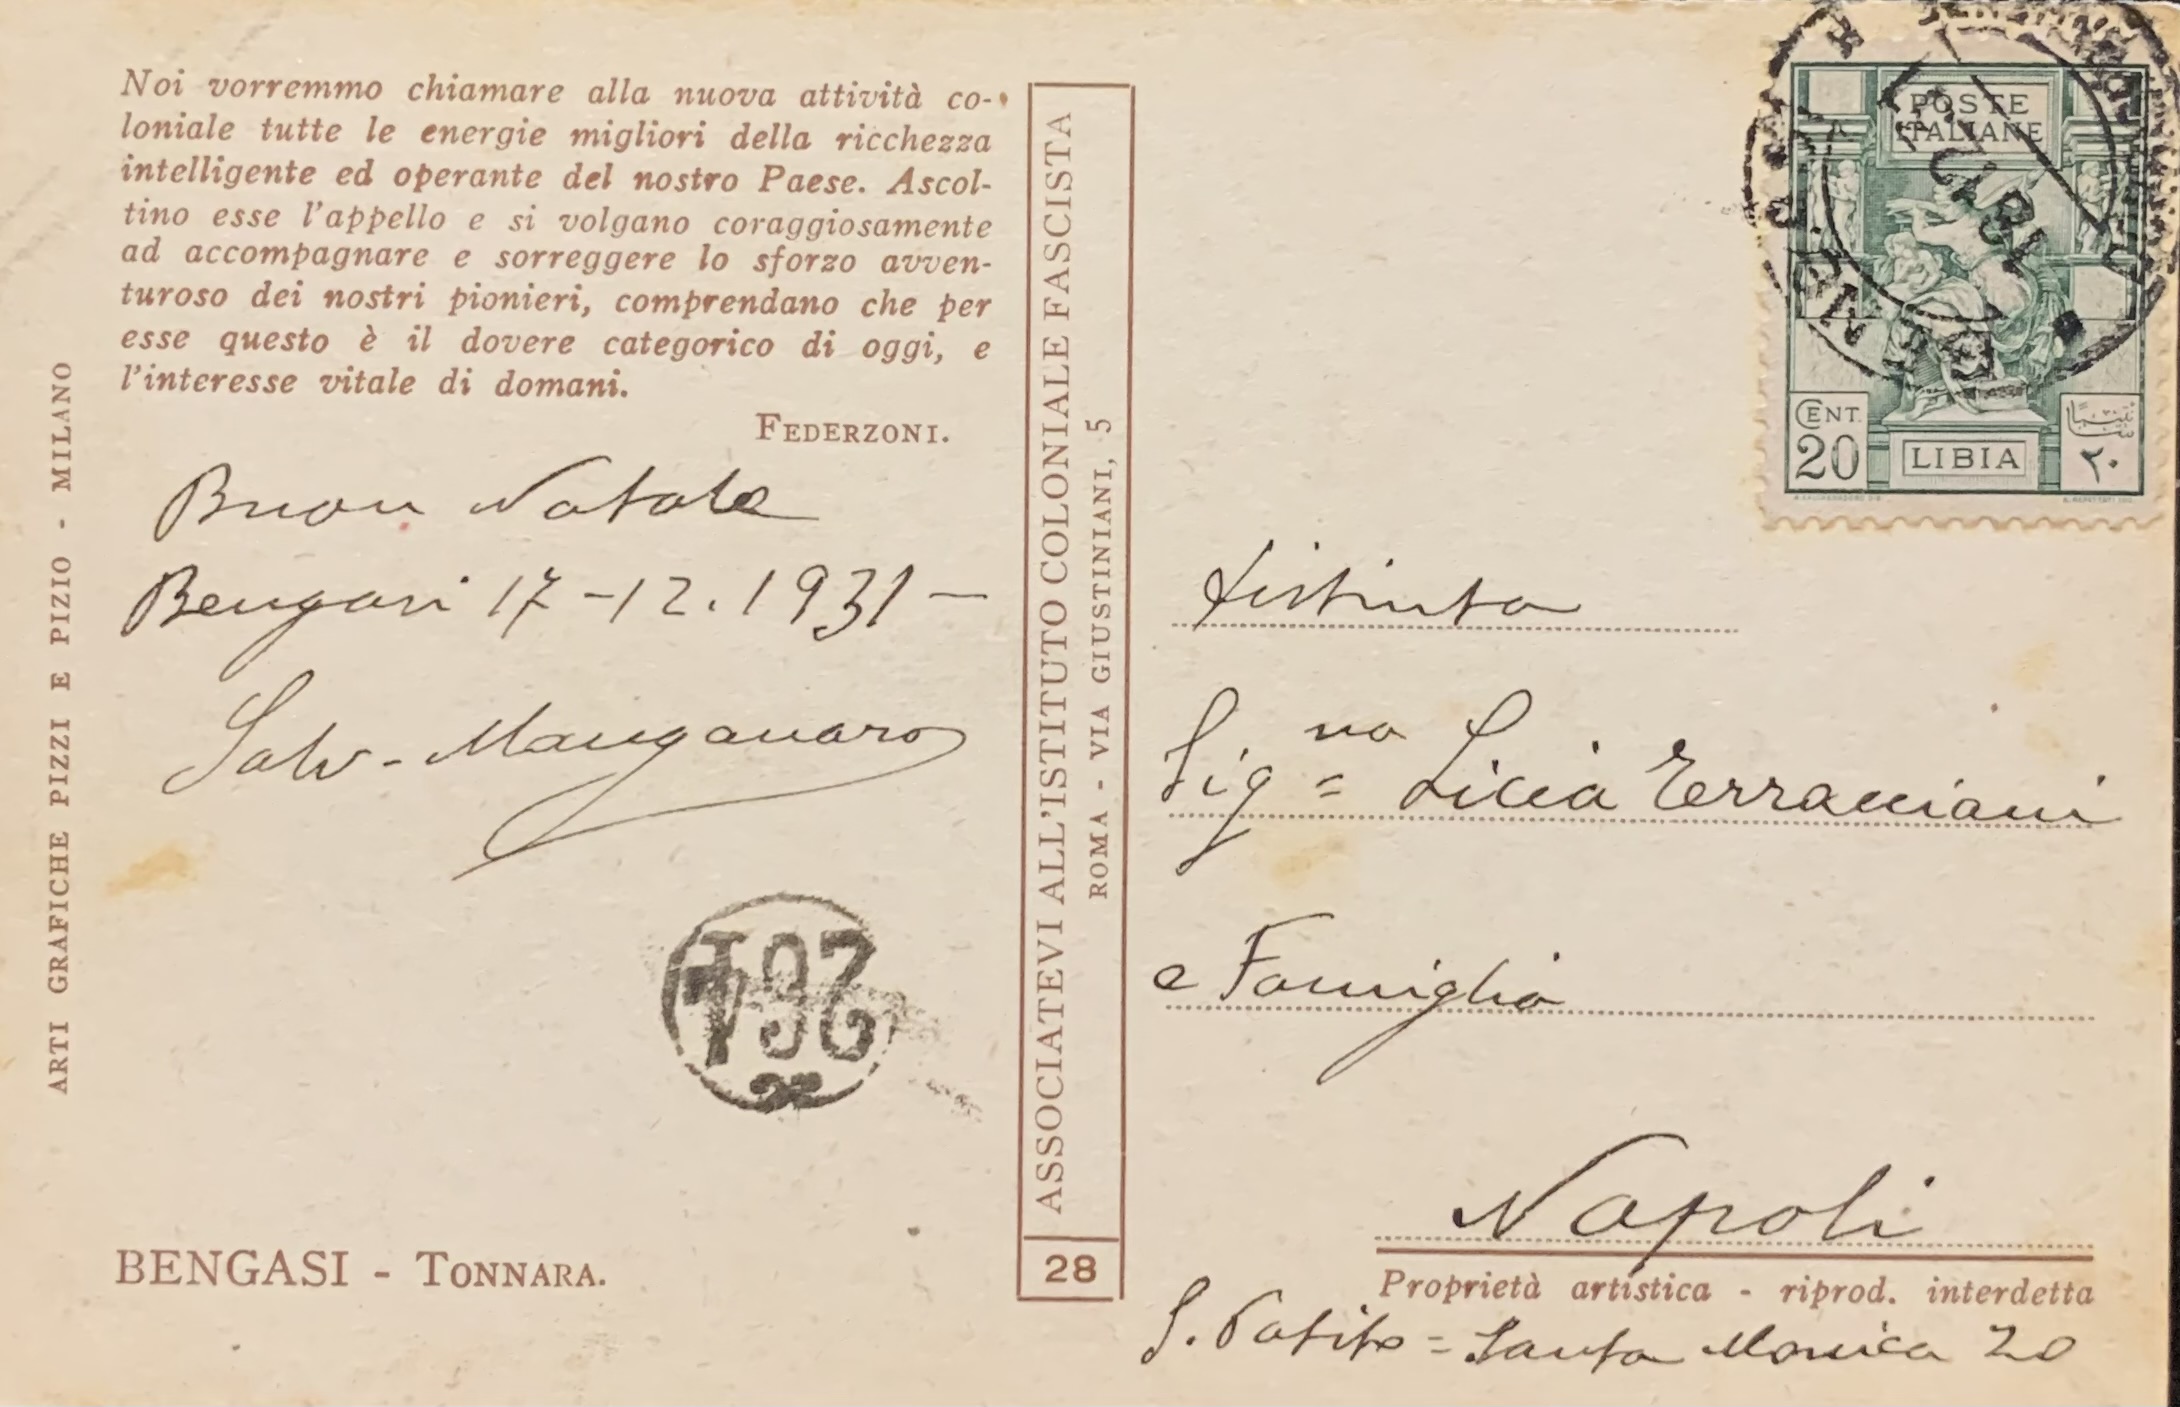 Noi vorremmo chiamare alla nuova attività co-
loniale tutte le energie migliori della ricchezza
intelligente ed operante del nostro Paese. Ascol-
tino esse l'appello e si volgano coraggiosamente
ad accompagnare e sorreggere lo sforzo avven-
turoso dei nostri pionieri, comprendano che per
esse questo è il dovere categorico di oggi, e
l'interesse vitale di domani.
FEDERZONI.
Buon Natale
Bengasi 17-12.1931-
Salv-Manganaro
BENGASI - TONNARA.
ARTI GRAFICHE PIZZI E PIZIO - MILANO
ASSOCIATEVI ALL'ISTITUTO COLONIALE FASCISTA
ROMA - VIA GIUSTINIANI, 5
28
POSTE
ITALIANE
CENT.
20
LIBIA
٢٠
Distinta
Sig.na = Licia Terracciani
e Famiglia
Napoli
Proprietà artistica - riprod. interdetta
S. Potito = Santa Monica 20